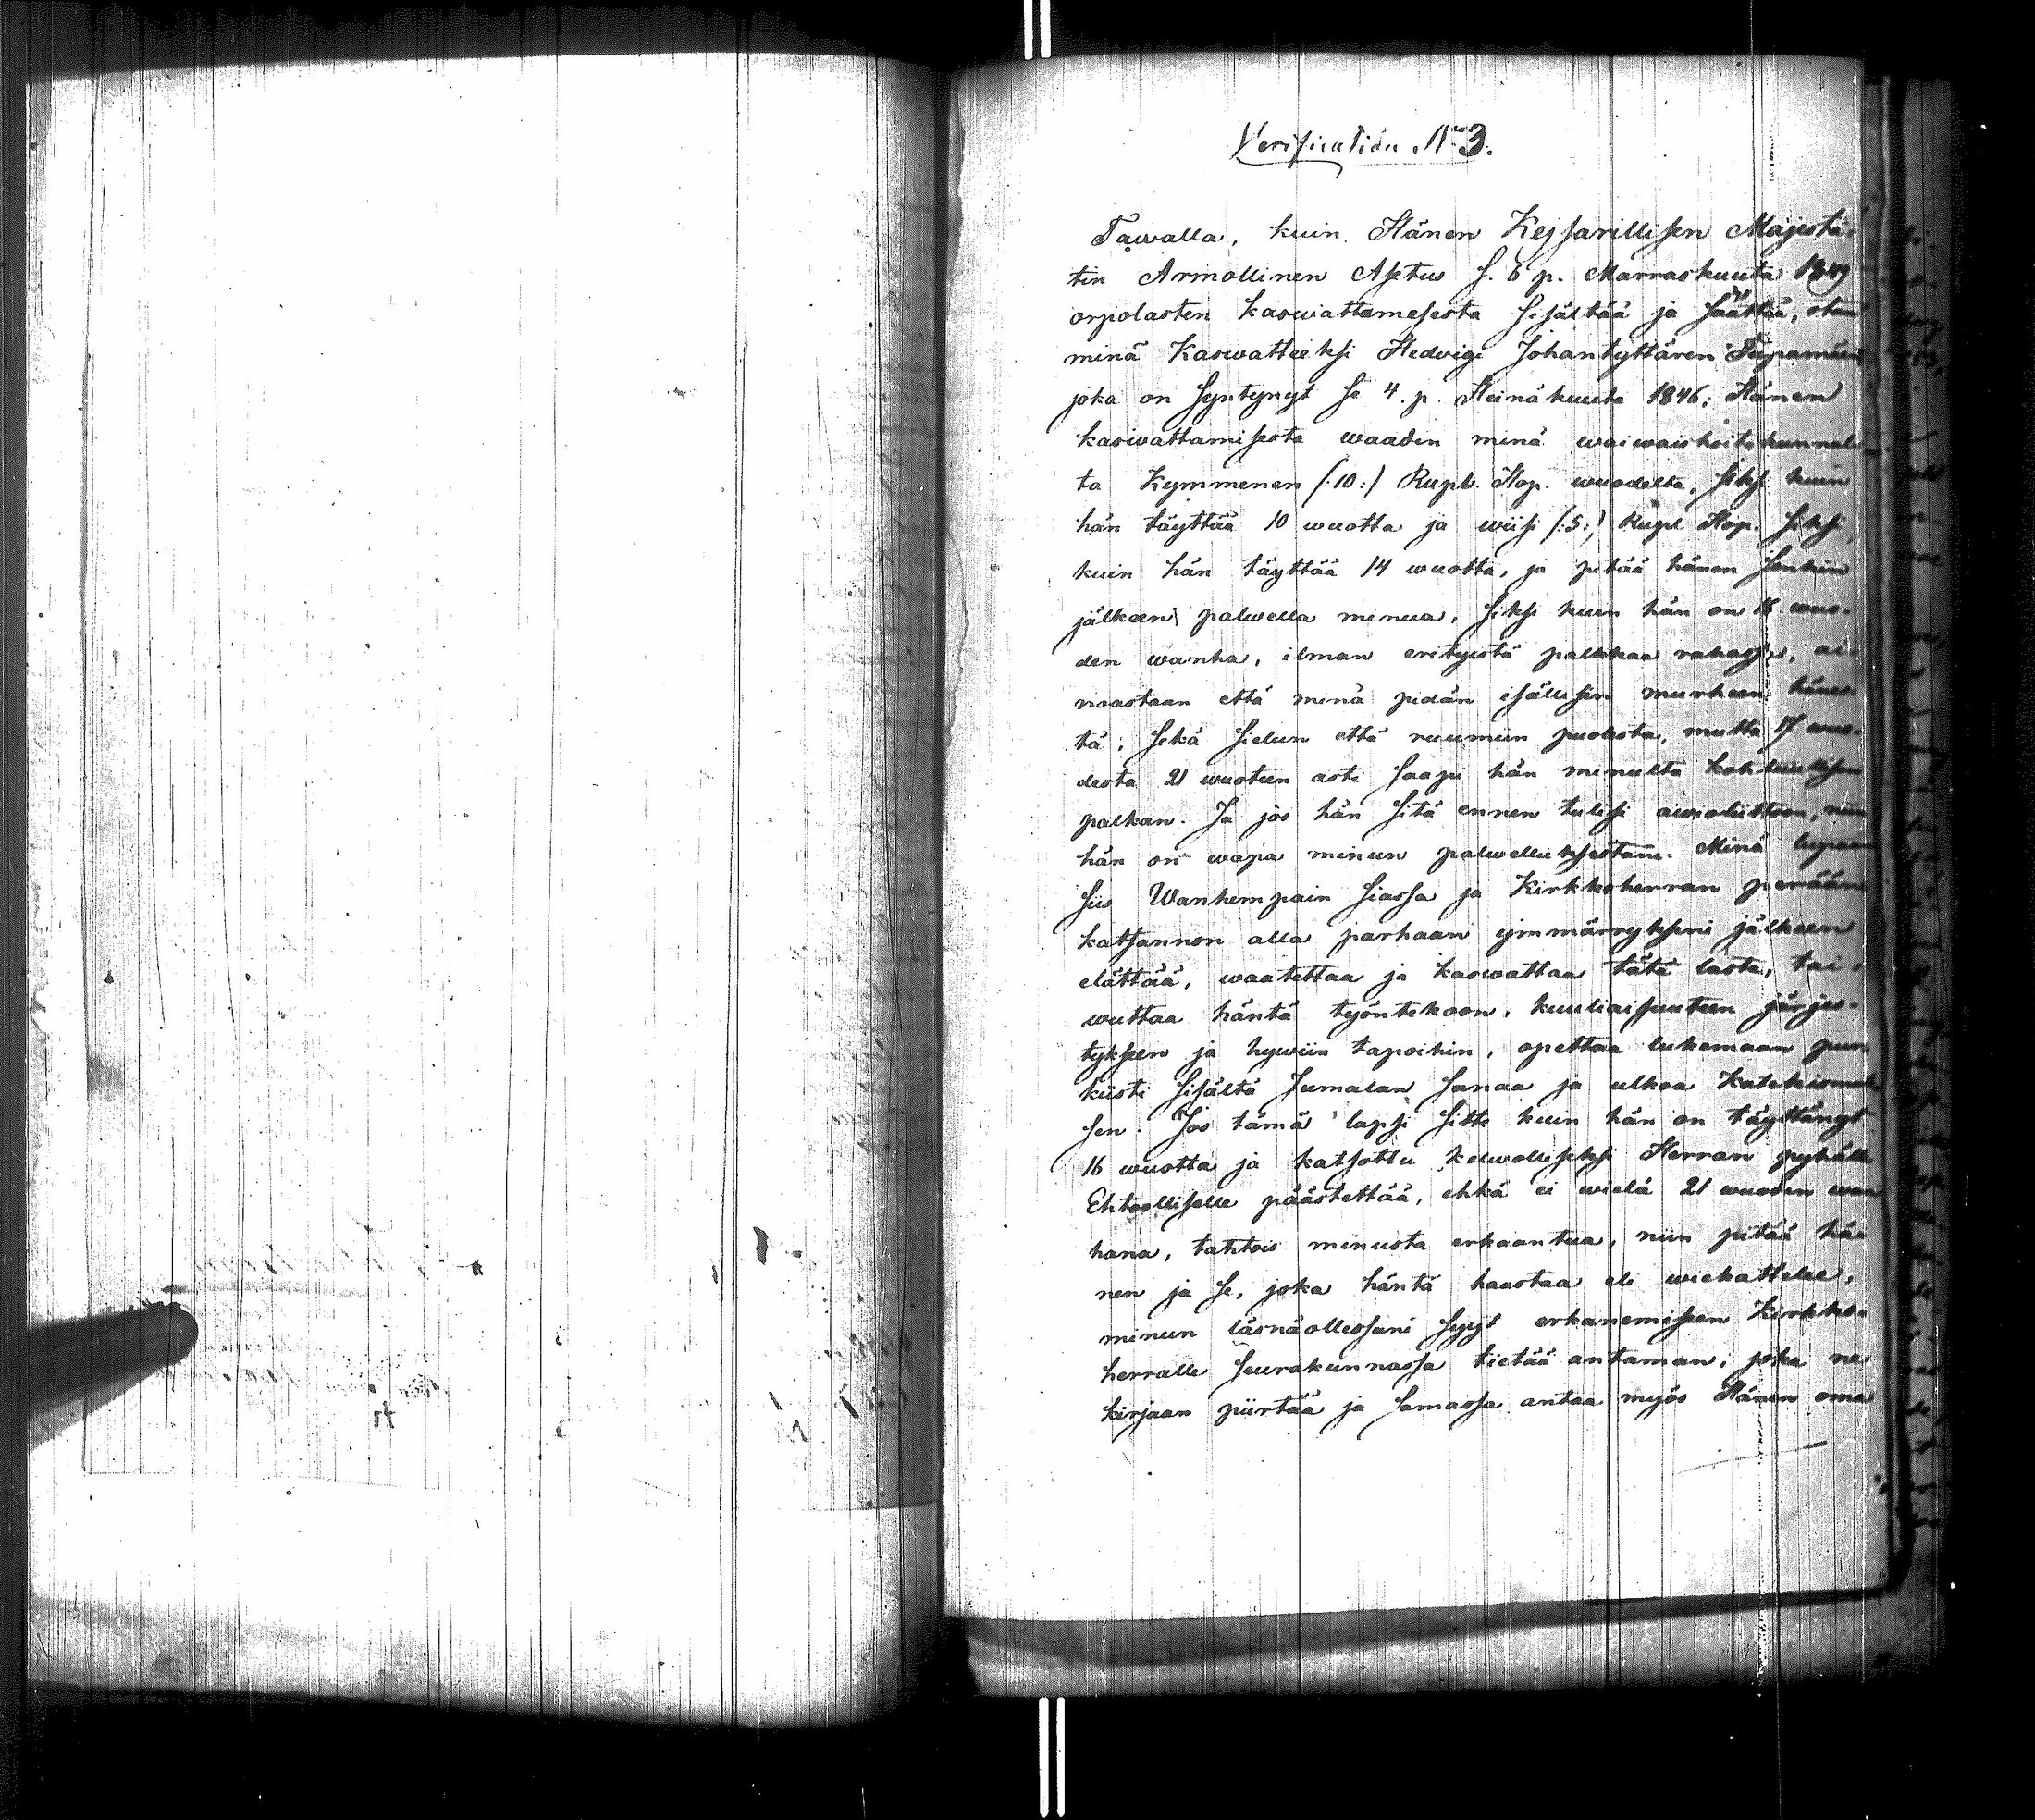 Verification No 3.
Tawalla, kuin Hänen Kejsarillisen Majestä-
tin Armollinen Asetus s. 6 p. Marraskuuta 1849
orpolasten kaswattamesesta sisältää ja säättää, otan
minä Kaswatteeksi Hedvigi Johantyttären
joka on syntynyt se 4. p. Heinäkuuta 1846; Hänen
kaswattamisesta waadin minä waiwaishoitokunnal-
ta Kymmenen (:10:) Rupl. Hop. wuodelta, siksi kuin
hän täyttää 10 wuotta ja wiisi (:5:) Rupl Hop. siksi
kuin hän täyttää 14 wuotta, ja pitää hänen senkin
jälkeen palwella minua, siksi kuin hän on 16 wuo-
den wanha, ilman erityistä palkkaa rahassa, ai-
noastaan että minä pidän isällisen murheen hänes-
tä; sekä sielun että ruumiin puolesta, mutta 17 wuo-
desta 21 wuoteen asti saapi hän minulta kohtuullisen
palkan. Ja jos hän sitä ennen tulisi awioliittoon, niin
hän on wapa minun palwelluksestani. Minä lupaan
siis Wanhempain siassa ja Kirkkoherran perään
katsannon alla parhaan ymmärrykseni jälkeen
elättää, waatettaa ja kaswattaa tätä lasta, tai-
wuttaa häntä työntekoon, kuuliaisuuteen järjes-
tykseen ja hywiin tapoihin, opettaa lukemaan pun
kiisti sisältä Jumalan sanaa ja ulkoa Katekismuk
sen. Jos tämä lapsi sitte kuin hän on täyttänyt
16 wuotta ja katsottu kelwolliseksi Herran pyhälle
Ehtoolliselle päästettää, ehkä ei wielä 21 wuoden wan
hana, tahtois minusta erkaantua, niin pitää hä-
nen ja se, joka häntä haastaa eli wiekattelee,
minun läsnäollessani syyt erkanemiseen Kirkko-
herralle seurakunnassa tietää antaman; joka ne
kirjaan piirtää ja samassa antaa myös Hänen oma